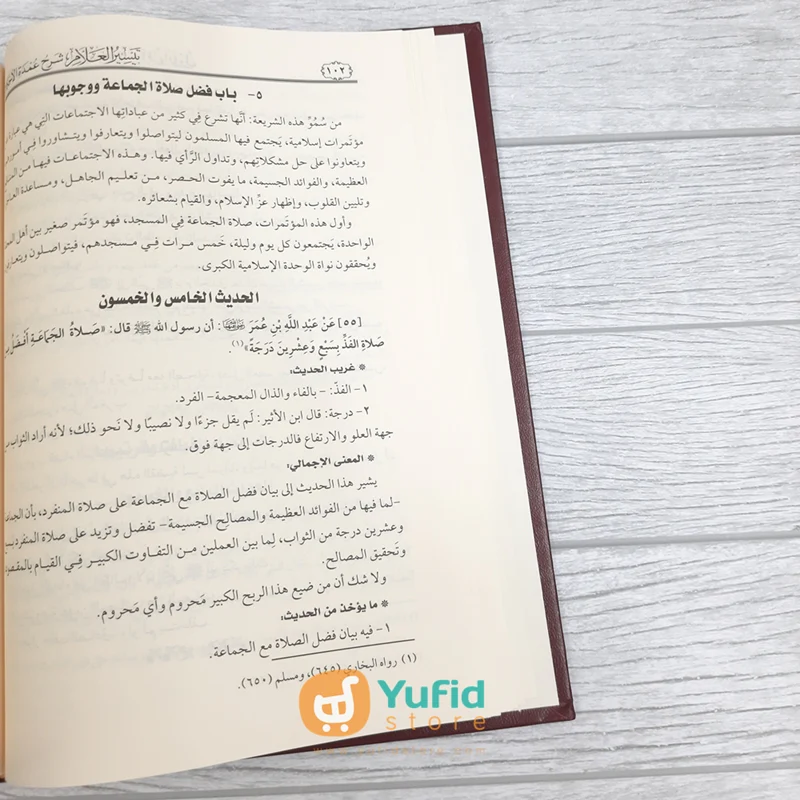 تيسير العلام، شرح عمدة
١٠٢
٥- باب فضل صلاة الجماعة ووجوبها
من سُمُوِّ هذه الشريعة: أنَّها تشرع فِي كثير من عباداتِها الاجتماعات التِي هي عبارة
مؤتَمرات إسلامية، يَجتمع فيها المسلمون ليتواصلوا ويتعارفوا ويتشاوروا فِي
ويتعاونوا على حل مشكلاتِهم، وتداول الرَّأي فيها. وهذه الاجتماعات فيها مـن
العظيمة، والفوائد الجسيمة، ما يفوت الحصر، مـن تعليـم الجاهـل، ومساعدة
وتليين القلوب، وإظهار عزِّ الإسلام، والقيام بشعائره.
وأول هذه المؤتَمرات، صلاة الجماعة فِي المسجد، فهو مؤتَمر صغير بين أهل
الواحدة، يَجتمعون كل يوم وليلة، خَمس مرات فِي مسجدهم، فيتواصلون
ويُحققون نواة الوحدة الإسلامية الكبرى.
الحديث الخامس والخمسون
[٥٥] عَنْ عَبْدِ اللَّهِ بْنِ عُمَرَ رضي الله عنهما: أن رسول الله ﷺ قال: «صَلاةُ الجَمَاعَةِ أَفْضَلُ
صَلاةِ الفَذِّ بِسَبْعٍ وَعِشْرِينَ دَرَجَةً»(١).
* غريب الحديث:
١- الفذّ: - بالفاء والذال المعجمة- الفرد.
٢- درجة: قال ابن الأثير: لَم يقل جزءًا ولا نصيبًا ولا نَحو ذلك؛ لأنه أراد الثواب
جهة العلو والارتفاع فالدرجات إلى جهة فوق.
* المعنى الإجمالي:
يشير هذا الحديث إلى بيان فضل الصلاة مع الجماعة على صلاة المنفرد، بأن
-لما فيها من الفوائد العظيمة والمصالح الجسيمة- تفضل وتزيد على صلاة المنفرد
وعشرين درجة من الثواب، لِما بين العملين من التفاوت الكبير فِي القيام
وتَحقيق المصالح.
ولا شك أن من ضيع هذا الربح الكبير مَحروم وأي مَحروم.
* ما يؤخذ من الحديث:
١- فيه بيان فضل الصلاة مع الجماعة.
(١) رواه البخاري (٦٤٥)، ومسلم (٦٥٠).
Yufid
store